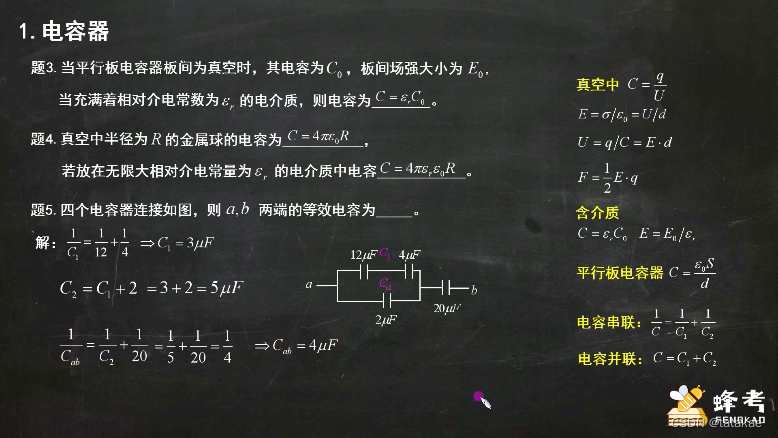 1.电容器
题3.当平行板电容器板间为真空时，其电容为C₀，板间场强大小为 E₀，
当充满着相对介电常数为εᵣ的电介质，则电容为 C=εᵣC₀ 。
题4.真空中半径为R的金属球的电容为 C=4πε₀R ，
若放在无限大相对介电常量为εᵣ的电介质中电容 C=4πεᵣε₀R 。
题5.四个电容器连接如图，则 a,b 两端的等效电容为_____。
解：1/C₁=1/12+1/4 ⇒C₁=3μF
C₂=C₁+2=3+2=5μF
1/Cab=1/C₂+1/20=1/5+1/20=1/4 ⇒Cab=4μF
12μF C₁ 4μF
a C₂ b
2μF 20μF
真空中 C=q/U
E=σ/ε₀=U/d
U=q/C=E·d
F=1/2E·q
含介质
C=εᵣC₀ E=E₀/εᵣ
平行板电容器 C=ε₀S/d
电容串联：1/C=1/C₁+1/C₂
电容并联：C=C₁+C₂
蜂考
FENGKAO